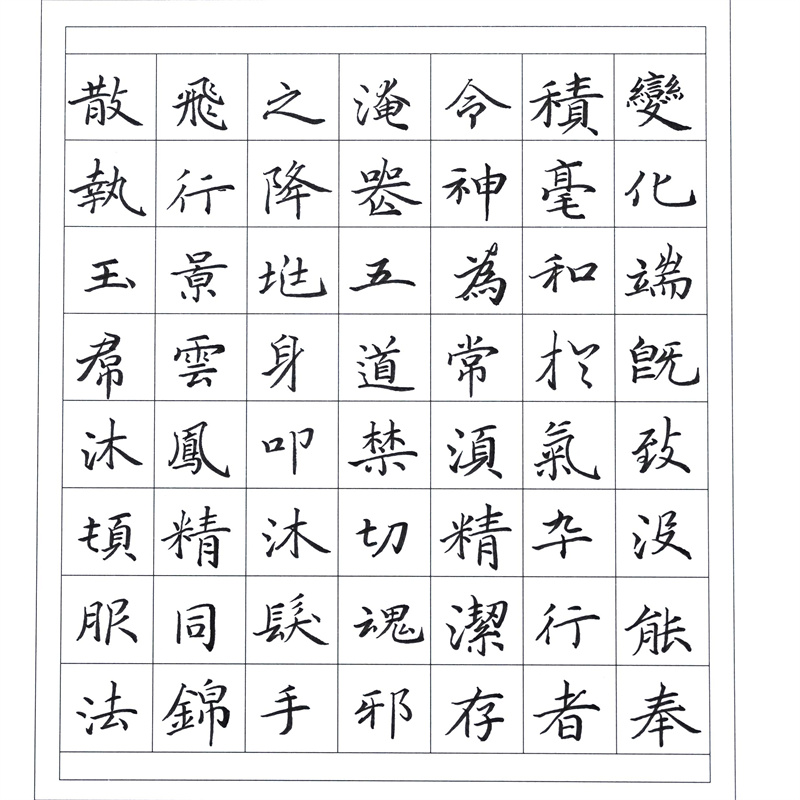 變化端既致没能奉
積毫和於氣卆行者
令神為常湏精潔存
淹器五道禁切魂邪
之降地身叩沐髮手
飛行景雲鳳精同錦
散執玉帬沐頓服法